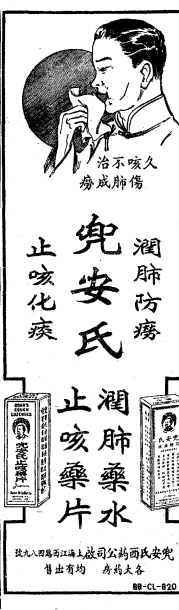 久咳不治
傷肺成癆
潤肺防癆
兜安氏
止咳化痰
潤肺藥水
止咳藥片
兜安氏西葯公司啟上海江西路四八九號
各大葯房 均有出售
BB-CL-820